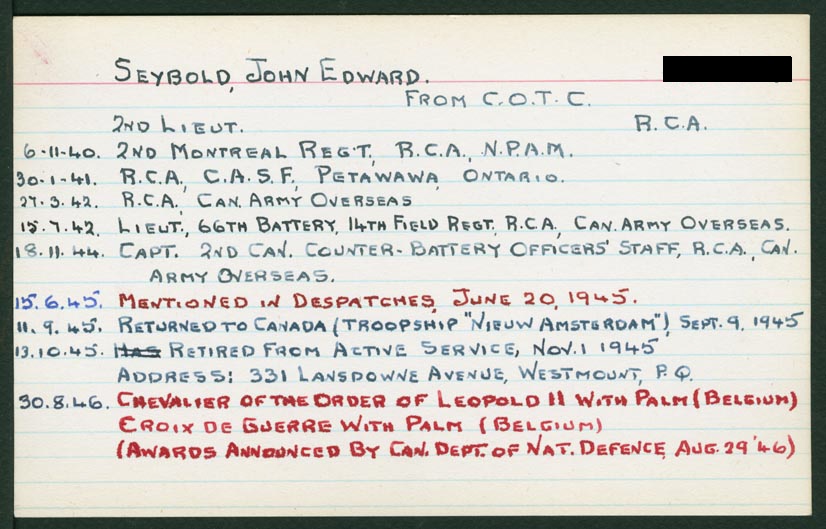 SEYBOLD, JOHN EDWARD.
FROM C.O.T.C.
2ND LIEUT. R.C.A.
6-11-40. 2ND MONTREAL REG'T, R.C.A., N.P.A.M.
30-1-41. R.C.A., C.A.S.F., PETAWAWA, ONTARIO.
27.3.42. R.C.A., CAN. ARMY OVERSEAS
15.7.42. LIEUT., 66TH BATTERY, 14TH FIELD REGT, R.C.A., CAN. ARMY OVERSEAS.
18.11.44. CAPT. 2ND CAN. COUNTER-BATTERY OFFICERS' STAFF, R.C.A., CAN.
ARMY OVERSEAS.
15.6.45. MENTIONED IN DESPATCHES, JUNE 20, 1945.
11.9.45. RETURNED TO CANADA (TROOPSHIP "NIEUW AMSTERDAM"), SEPT. 9, 1945
13.10.45. HAS RETIRED FROM ACTIVE SERVICE, NOV. 1 1945
ADDRESS: 331 LANSDOWNE AVENUE, WESTMOUNT, P.Q.
30.8.46. CHEVALIER OF THE ORDER OF LEOPOLD II WITH PALM (BELGIUM)
CROIX DE GUERRE WITH PALM (BELGIUM)
(AWARDS ANNOUNCED BY CAN. DEPT. OF NAT. DEFENCE, AUG. 29 '46)